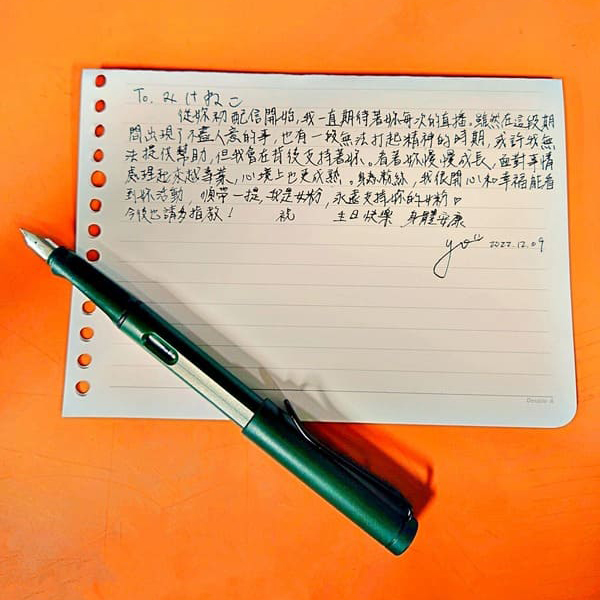 To. みけねこ
從妳初配信開始,我一直期待著妳每次的直播。雖然在這段期
間出現了不盡人意的事,也有一段無法打起精神的時期,或許我無
法提供幫助,但我會在背後支持著妳。看著妳慢慢成長、面對事情
處理起來越專業、心境上也更成熟。身為粉絲,我很開心和幸福能看
到妳活動,順帶一提,我是女粉,永遠支持妳的女粉♡
今後也請多指教! 祝 生日快樂 身體安康
yo 2022.12.09
Double A